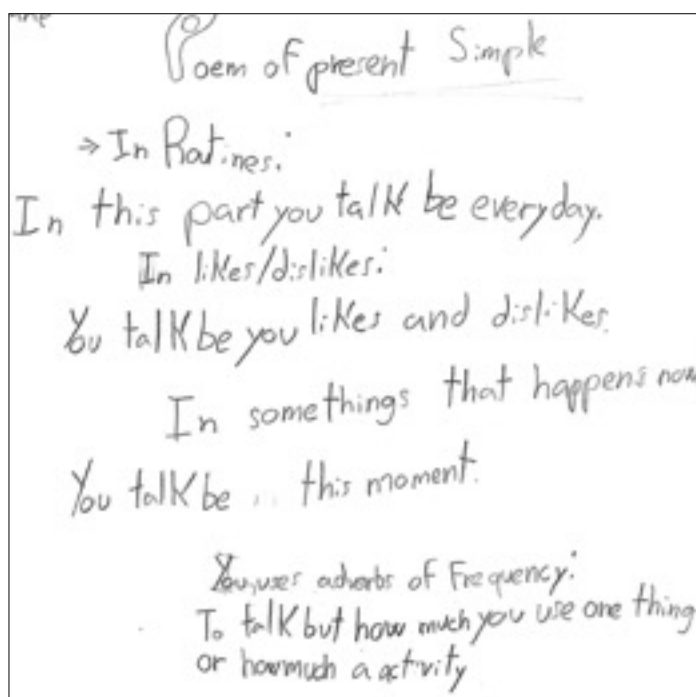 Poem of present Simple
→ In Rotines:
In this part you talk be everyday.
In likes/dislikes:
You talk be you likes and dislikes.
In somethings that happens now
You talk be .. this moment.
You uses adverbs of Frequency:
To talk but how much you use one thing
or how much a activity